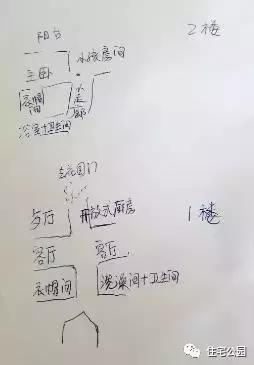 阳台
2楼
小孩房间
主卧
衣帽间
浴室+卫生间
去花园门
开放式厨房
1楼
客厅
客厅
衣帽间
洗澡间+卫生间
住宅公园